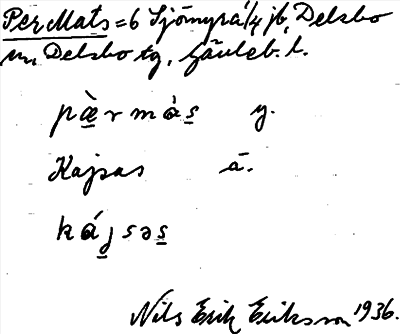 Per Mats = 6 Sjömyra 1/4 jb, Delsbo
sn, Delsbo tg, Gävleb. l.
pæ̀rmàs y.
Kajsas ä.
kájsəs
Nils Erik Eriksson 1936.